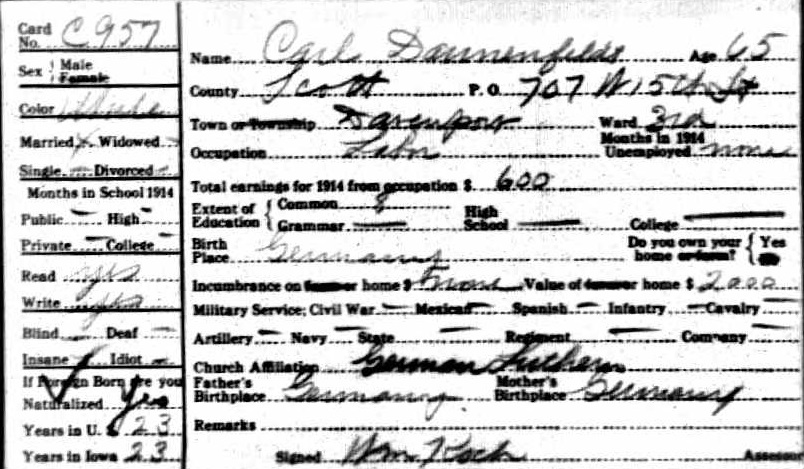 Card No. C957
Sex Male Female
Color White
Married x Widowed –
Single – Divorced –
Months in School 1914
Public – High –
Private – College –
Read yes
Write yes
Blind – Deaf –
Insane – Idiot –
If Foreign Born are you
Naturalized yes
Years in U. S 23
Years in Iowa 23
Name Carl Dannenfeldt Age 65
County Scott P. O. 707 W 15th St
Town or Township Davenport Ward 3rd
Occupation Labor Months in 1914 Unemployed none
Total earnings for 1914 from occupation $ 600
Extent of Education { Common 8 High School — College —
Grammar —
Birth Place Germany Do you own your home or farm? { Yes
Incumbrance on farm or home $ none Value of farm or home $ 2000
Military Service; Civil War – Mexican – Spanish – Infantry – Cavalry –
Artillery – Navy – State – Regiment – Company –
Church Affiliation German Luthern
Father's Birthplace Germany Mother's Birthplace Germany
Remarks
Signed Wm. Koch Assessor